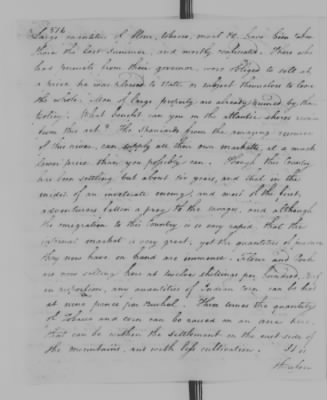 Large quantities of flour, tobacco, meat &c have been taken
there the last summer, and mostly confiscated. Those who
had permits from their governor, were obliged to sell at
a price he was pleased to state, or subject themselves to loose
the whole. Men of large property are already ruined by this
Policy. What benefit can you on the atlantic shores receive
from this act? The Spaniards from the amazing resources
of this river, can supply all their own markets, at a much
lower price than you possibly can. Though this Country
has been settling but about six years, and that in the
midst of an inveterate enemy, and most of the first
adventurers fallen a prey to the savages, and although
the emigration to this Country is so very rapid, that the
internal market is very great, yet the quantities of produce
they now have on hand are immense. Flour and Pork
are now selling here at twelve shillings per hundred, Beef
in proportion, any quantities of Indian corn can be had
at nine pence per Bushel. Three times the quantity
of Tobacco and corn can be raised on an acre here,
that can be within the settlement on the east side of
the mountains, and with less cultivation. It is
therefore